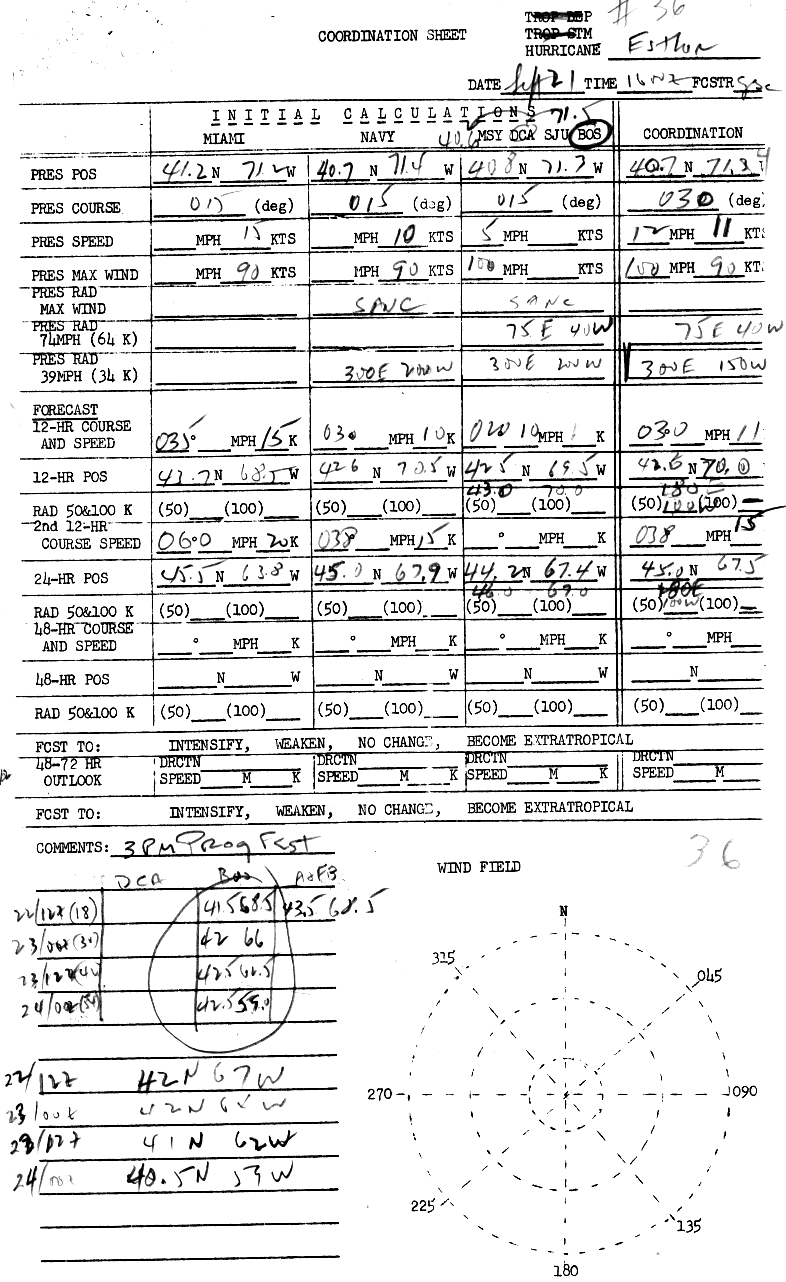 # 36
COORDINATION SHEET
TROP DEP
TROP STM
HURRICANE Esther
DATE Sept 21 TIME 16NZ FCSTR
INITIAL CALCULATIONS 71.5
MIAMI NAVY 40.6 MSY DCA SJU BOS COORDINATION
PRES POS 41.2 N 71.2 W 40.7 N 71.4 W 40.8 N 71.3 W 40.7 N 71.3 4
PRES COURSE 015 (deg) 015 (deg) 015 (deg) 030 (deg)
PRES SPEED MPH 15 KTS MPH 10 KTS 5 MPH KTS 12 MPH 11 KTS
PRES MAX WIND MPH 90 KTS MPH 90 KTS 100 MPH KTS 100 MPH 90 KTS
PRES RAD
MAX WIND SANC SANC
PRES RAD
74MPH (64 K) 75E 40W 75E 40W
PRES RAD
39MPH (34 K) 300E 200W 300E 200W 300E 150W
FORECAST
12-HR COURSE
AND SPEED 035° MPH 15 K 030 MPH 10 K 020 10 MPH K 030 MPH 11
12-HR POS 43.7 N 68.5 W 42.6 N 70.5 W 42.5 N 69.5 W 42.6 N 70.0
43.0 70.0 180E
RAD 50&100 K (50) (100) (50) (100) (50) (100) (50) 100W (100)
2nd 12-HR
COURSE SPEED 060 MPH 20 K 038 MPH 15 K ° MPH K 038 MPH 15
24-HR POS 45.5 N 63.8 W 45.0 N 67.9 W 44.2 N 67.4 W 45.0 N 67.5
46.0 69.0 180E
RAD 50&100 K (50) (100) (50) (100) (50) (100) (50) 100W (100)
48-HR COURSE
AND SPEED ° MPH K ° MPH K ° MPH K ° MPH
48-HR POS N W N W N W N
RAD 50&100 K (50) (100) (50) (100) (50) (100) (50) (100)
FCST TO: INTENSIFY, WEAKEN, NO CHANGE, BECOME EXTRATROPICAL
48-72 HR DRCTN DRCTN DRCTN DRCTN
OUTLOOK SPEED M K SPEED M K SPEED M K SPEED M
FCST TO: INTENSIFY, WEAKEN, NO CHANGE, BECOME EXTRATROPICAL
COMMENTS: 3 PM Prog Fcst
36
WIND FIELD
DCA Bos
22/12Z (18) 41.5 68.5 43.5 68.5
23/00Z (30) 42 66
23/12Z (42) 42.5 62.5
24/00Z (54) 42.5 59.0
22/12Z 42N 67W
23/00Z 42N 65W
23/12Z 41N 62W
24/00Z 40.5N 59W
N
315 045
270 090
225 135
180